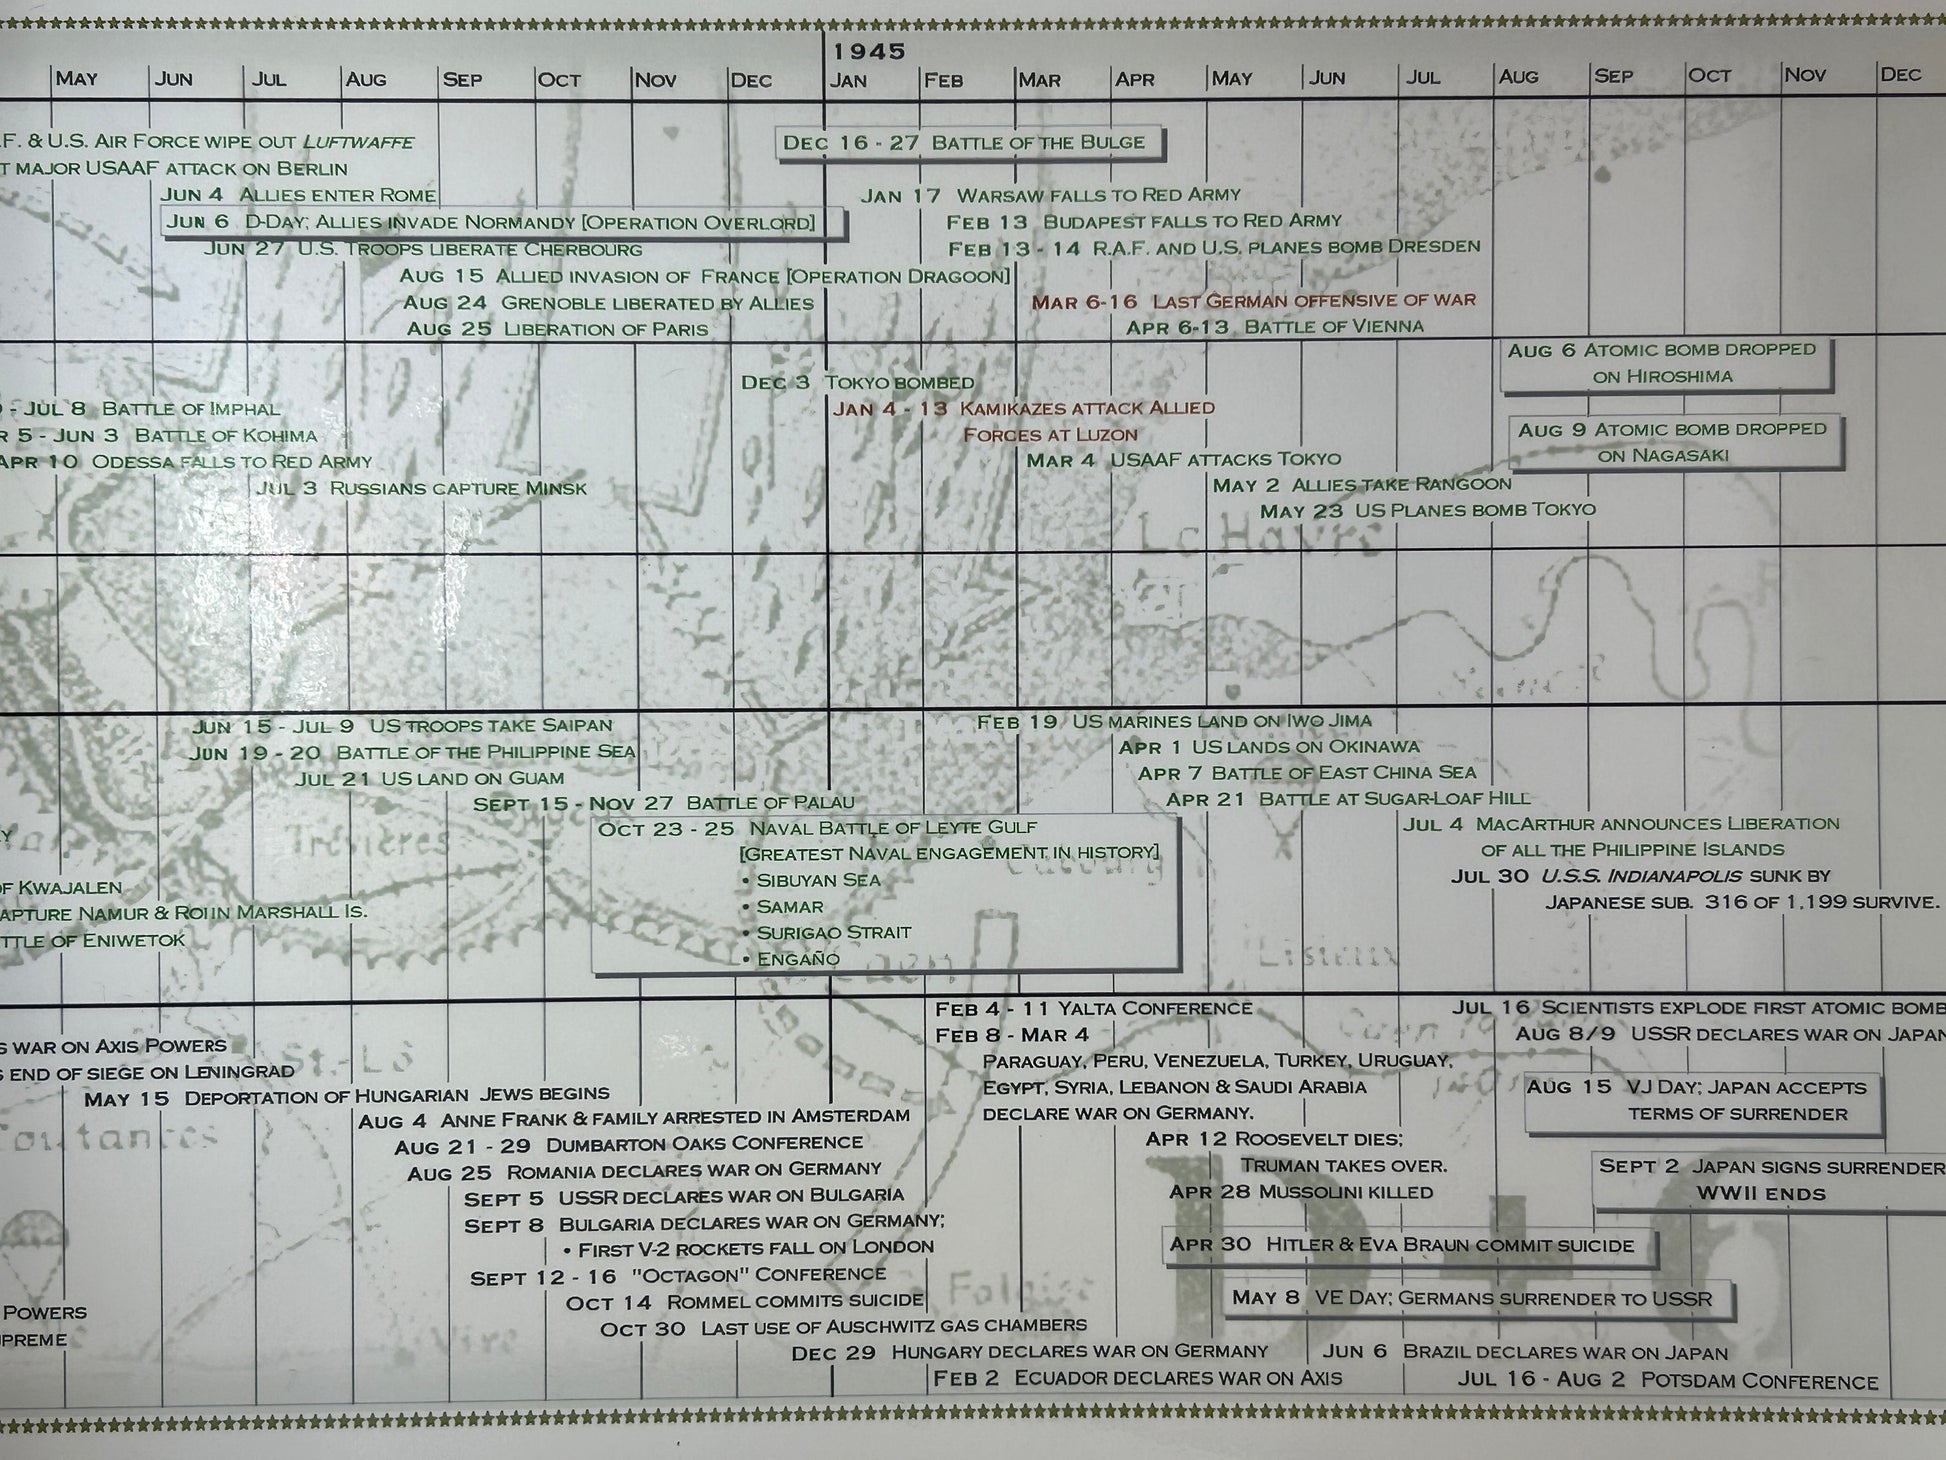 1945
MAY JUN JUL AUG SEP OCT NOV DEC JAN FEB MAR APR MAY JUN JUL AUG SEP OCT NOV DEC
.F. & U.S. AIR FORCE WIPE OUT LUFTWAFFE
T MAJOR USAAF ATTACK ON BERLIN
JUN 4 ALLIES ENTER ROME
JUN 6 D-DAY; ALLIES INVADE NORMANDY [OPERATION OVERLORD]
JUN 27 U.S. TROOPS LIBERATE CHERBOURG
AUG 15 ALLIED INVASION OF FRANCE [OPERATION DRAGOON]
AUG 24 GRENOBLE LIBERATED BY ALLIES
AUG 25 LIBERATION OF PARIS
DEC 16 - 27 BATTLE OF THE BULGE
JAN 17 WARSAW FALLS TO RED ARMY
FEB 13 BUDAPEST FALLS TO RED ARMY
FEB 13 - 14 R.A.F. AND U.S. PLANES BOMB DRESDEN
MAR 6-16 LAST GERMAN OFFENSIVE OF WAR
APR 6-13 BATTLE OF VIENNA
- JUL 8 BATTLE OF IMPHAL
R 5 - JUN 3 BATTLE OF KOHIMA
APR 10 ODESSA FALLS TO RED ARMY
JUL 3 RUSSIANS CAPTURE MINSK
DEC 3 TOKYO BOMBED
JAN 4 - 13 KAMIKAZES ATTACK ALLIED
FORCES AT LUZON
MAR 4 USAAF ATTACKS TOKYO
MAY 2 ALLIES TAKE RANGOON
MAY 23 US PLANES BOMB TOKYO
AUG 6 ATOMIC BOMB DROPPED
ON HIROSHIMA
AUG 9 ATOMIC BOMB DROPPED
ON NAGASAKI
Le Havre
JUN 15 - JUL 9 US TROOPS TAKE SAIPAN
JUN 19 - 20 BATTLE OF THE PHILIPPINE SEA
JUL 21 US LAND ON GUAM
SEPT 15 - NOV 27 BATTLE OF PALAU
OCT 23 - 25 NAVAL BATTLE OF LEYTE GULF
[GREATEST NAVAL ENGAGEMENT IN HISTORY]
• SIBUYAN SEA
• SAMAR
• SURIGAO STRAIT
• ENGAÑO
Y
OF KWAJALEN
APTURE NAMUR & ROIIN MARSHALL IS.
TTLE OF ENIWETOK
Trévières
Caen
Lisieux
FEB 19 US MARINES LAND ON IWO JIMA
APR 1 US LANDS ON OKINAWA
APR 7 BATTLE OF EAST CHINA SEA
APR 21 BATTLE AT SUGAR-LOAF HILL
JUL 4 MACARTHUR ANNOUNCES LIBERATION
OF ALL THE PHILIPPINE ISLANDS
JUL 30 U.S.S. INDIANAPOLIS SUNK BY
JAPANESE SUB. 316 OF 1,199 SURVIVE.
S WAR ON AXIS POWERS
S END OF SIEGE ON LENINGRAD
St.-Lô
MAY 15 DEPORTATION OF HUNGARIAN JEWS BEGINS
AUG 4 ANNE FRANK & FAMILY ARRESTED IN AMSTERDAM
Coutances
AUG 21 - 29 DUMBARTON OAKS CONFERENCE
AUG 25 ROMANIA DECLARES WAR ON GERMANY
SEPT 5 USSR DECLARES WAR ON BULGARIA
SEPT 8 BULGARIA DECLARES WAR ON GERMANY;
• FIRST V-2 ROCKETS FALL ON LONDON
SEPT 12 - 16 "OCTAGON" CONFERENCE
OCT 14 ROMMEL COMMITS SUICIDE
OCT 30 LAST USE OF AUSCHWITZ GAS CHAMBERS
DEC 29 HUNGARY DECLARES WAR ON GERMANY
FEB 2 ECUADOR DECLARES WAR ON AXIS
POWERS
PREME
Vire
Falaise
FEB 4 - 11 YALTA CONFERENCE
FEB 8 - MAR 4
PARAGUAY, PERU, VENEZUELA, TURKEY, URUGUAY,
EGYPT, SYRIA, LEBANON & SAUDI ARABIA
DECLARE WAR ON GERMANY.
APR 12 ROOSEVELT DIES;
TRUMAN TAKES OVER.
APR 28 MUSSOLINI KILLED
APR 30 HITLER & EVA BRAUN COMMIT SUICIDE
MAY 8 VE DAY; GERMANS SURRENDER TO USSR
JUN 6 BRAZIL DECLARES WAR ON JAPAN
JUL 16 - AUG 2 POTSDAM CONFERENCE
JUL 16 SCIENTISTS EXPLODE FIRST ATOMIC BOMB
AUG 8/9 USSR DECLARES WAR ON JAPAN
AUG 15 VJ DAY; JAPAN ACCEPTS
TERMS OF SURRENDER
SEPT 2 JAPAN SIGNS SURRENDER
WWII ENDS
D+6